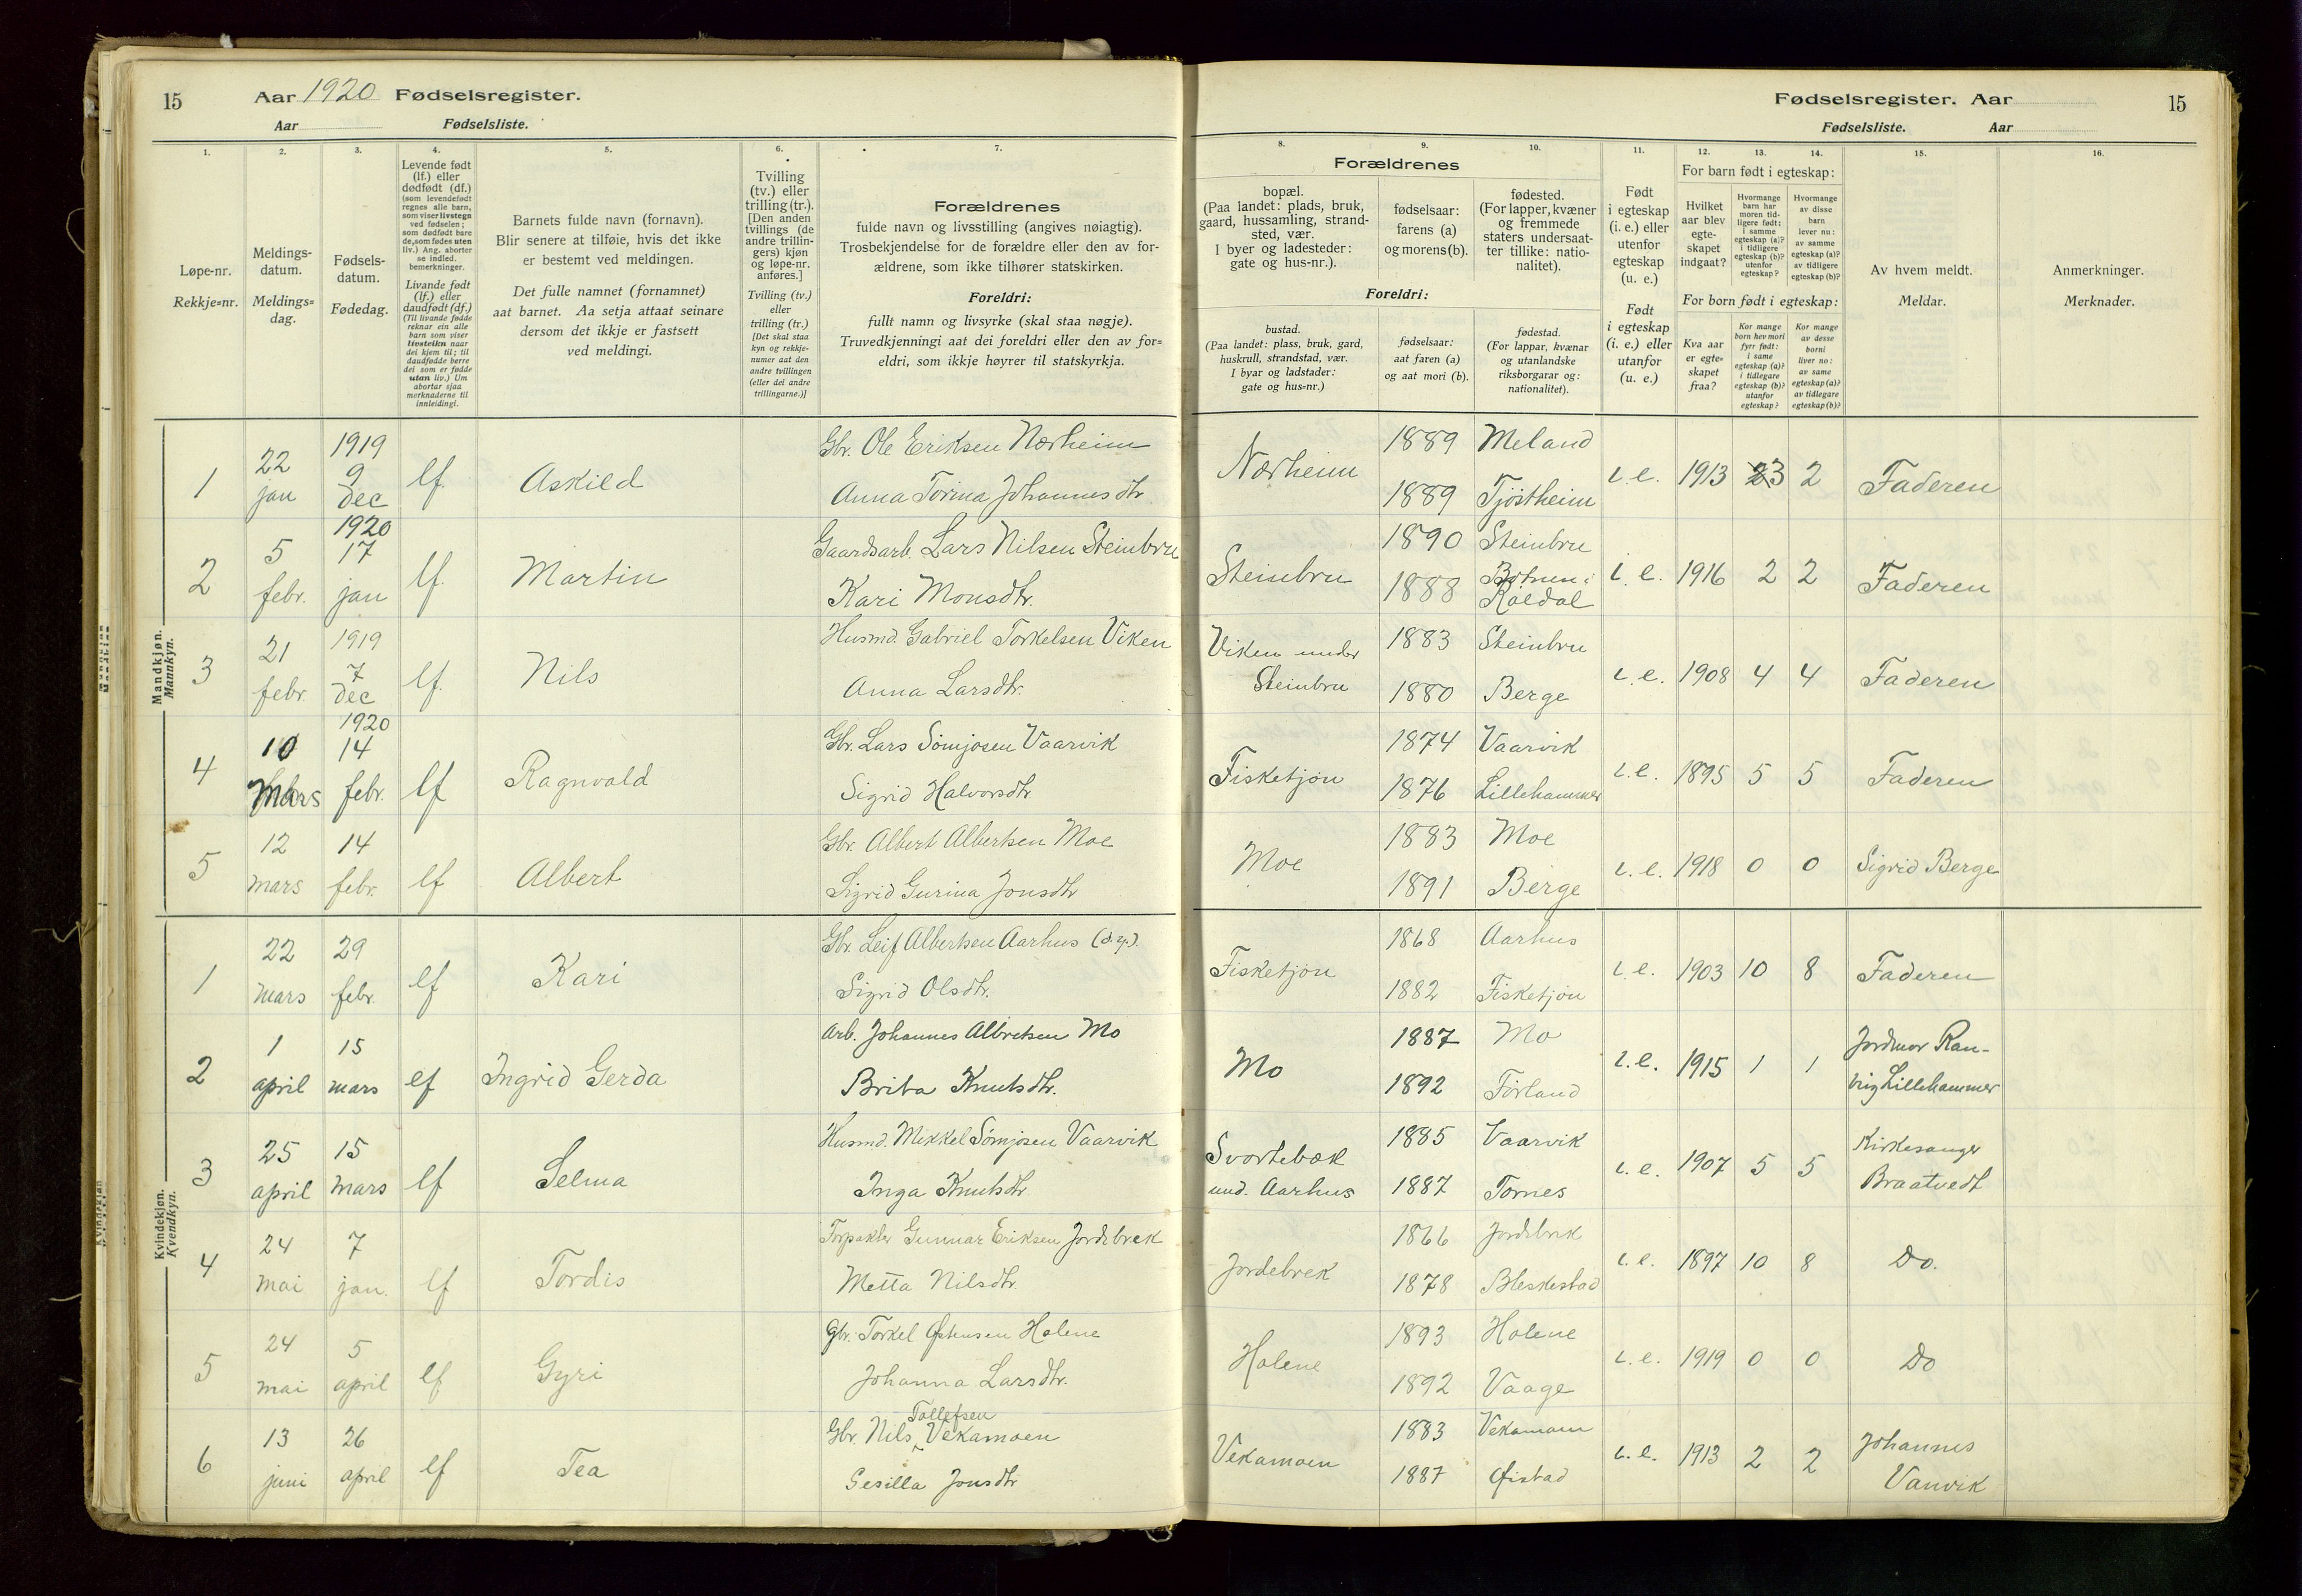 15 Aar 1920 Fødselsregister.
Aar Fødselsliste.
1. 2. 3. 4. 5. 6. 7.
Løpe-nr.
Rekkje=nr.
Meldings-
datum.
Meldings=
dag.
Fødsels-
datum.
Fødedag.
Levende født
(lf.) eller
dødfødt (df.)
(som levendefødt
regnes alle barn,
som viser livstegn
ved fødselen;
som dødfødt bare
de, som fødes uten
liv.) Ang. aborter
se indled.
bemerkninger.
Livande født
(lf.) eller
daudfødt (df.)
(Til livande fødde
reknar ein alle
barn som viser
livsteikn naar
dei kjem til; til
daudfødde berre
dei som er fødde
utan liv.) Um
abortar sjaa
merknaderne til
innleidingi.
Barnets fulde navn (fornavn).
Blir senere at tilføie, hvis det ikke
er bestemt ved meldingen.
Det fulle namnet (fornamnet)
aat barnet. Aa setja attaat seinare
dersom det ikkje er fastsett
ved meldingi.
Tvilling
(tv.) eller
trilling (tr.).
[Den anden
tvillings (de
andre trillin-
gers) kjøn
og løpe-nr.
anføres.]
Tvilling (tv.)
eller
trilling (tr.)
[Det skal staa
kyn og rekkje-
numer aat den
andre tvillingen
(eller dei andre
trillingarne.)]
Forældrenes
fulde navn og livsstilling (angives nøiagtig).
Trosbekjendelse for de forældre eller den av for-
ældrene, som ikke tilhører statskirken.
Foreldri:
fullt namn og livsyrke (skal staa nøgje).
Truvedkjenningi aat dei foreldri eller den av for=
eldri, som ikkje høyrer til statskyrkja.
Fødselsregister. Aar 15
Fødselsliste. Aar
8. 9. 10. 11. 12. 13. 14. 15. 16.
Forældrenes
bopæl.
(Paa landet: plads, bruk,
gaard, hussamling, strand-
sted, vær.
I byer og ladesteder:
gate og hus-nr.).
fødselsaar:
farens (a)
og morens (b).
fødested.
(For lapper, kvæner
og fremmede
staters undersaat-
ter tillike: natio-
nalitet).
Foreldri:
bustad.
(Paa landet: plass, bruk, gard,
huskrull, strandstad, vær.
I byar og ladstader:
gate og hus=nr.)
fødselsaar:
aat faren (a)
og aat mori (b).
fødestad.
(For lappar, kvænar
og utanlandske
riksborgarar og:
nationalitet).
Født
i egteskap
(i. e.) eller
utenfor
egteskap
(u. e.)
Født
i egteskap
(i. e.) eller
utanfor
egteskap
(u. e.)
For barn født i egteskap:
Hvilket
aar blev
egte-
skapet
indgaat?
Hvormange
barn har
moren tid-
ligere født:
i samme
egteskap (a)?
i tidligere
egteskap (b)?
utenfor
egteskap?
Hvormange
av disse
barn
lever nu:
av samme
egteskap (a)?
av tidligere
egteskap (b)?
For born født i egteskap:
Kva aar
er egte-
skapet
fraa?
Kor mange
born hev mori
fyrr født:
i same
egteskap (a)?
i tidlegare
egteskap (b)?
utanfor
egteskap?
Kor mange
av desse
borni
liver no:
av same
egteskap (a)?
av tidlegare
egteskap (b)?
Av hvem meldt.
Meldar.
Anmerkninger.
Merknader.
Mandkjøn.
Mannkyn.
1 22 jan 1919 9 dec lf. Askild Gbr. Ole Eriksen Nærheim Nærheim 1889 Meland i. e. 1913 3 2 Faderen
Anna Torina Johannesdtr. 1889 Tjöstheim
2 5 febr. 1920 17 jan lf. Martin Gaardsarb. Lars Nilsen Steinbru Steinbru 1890 Steinbru i. e. 1916 2 2 Faderen
Kari Monsdtr. 1888 Botnen i Röldal
3 21 febr. 1919 7 dec lf. Nils Husmd. Gabriel Torkelsen Viken Viken under Steinbru 1883 Steinbru i. e. 1908 4 4 Faderen
Anna Larsdtr. 1880 Berge
4 10 Mars 1920 14 febr. lf Ragnvald Gbr. Lars Sömjosen Vaarvik Fisketjön 1874 Vaarvik i. e. 1895 5 5 Faderen
Sigrid Halvorsdtr. 1876 Lillehammer
5 12 mars 14 febr. lf Albert Gbr. Albert Albertsen Moe Moe 1883 Moe i. e. 1918 0 0 Sigrid Berge
Sigrid Gurina Jonsdtr 1891 Berge
Kvindekjøn.
Kvendkyn.
1 22 mars 29 febr. lf Kari Gbr. Leif Albertsen Aarhus (d.y.) Fisketjön 1868 Aarhus i. e. 1903 10 8 Faderen
Sigrid Olsdtr. 1882 Fisketjön
2 1 april 15 mars lf Ingrid Gerda Arb. Johannes Albretsen Mo Mo 1887 Mo i. e. 1915 1 1 Jordmor Ran-
Brita Knutsdtr. 1892 Förland veig Lillehammer
3 25 april 15 mars lf Selma Husmd. Mikkel Sömjosen Vaarvik Svortebæk und. Aarhus 1885 Vaarvik i. e. 1907 5 5 Kirkesanger
Inga Knutsdtr 1887 Tornes Braatvedt
4 24 mai 7 jan. lf Tordis Forpakter Gunnar Eriksen Jordebrek Jordebrek 1866 Jordebrek i. e. 1897 10 8 Do.
Metta Nilsdtr. 1878 Bleskestad
5 24 mai 5 april lf Gyri Gbr. Torkel Østensen Holene Holene 1893 Holene i. e. 1919 0 0 Do
Johanna Larsdtr. 1892 Vaage
6 13 juni 26 april lf Tea Gbr. Nils Tollefsen Vekamoen Vekamoen 1883 Vekamoen i. e. 1913 2 2 Johannes
Gesilla Jonsdtr 1887 Øistad Vanvik